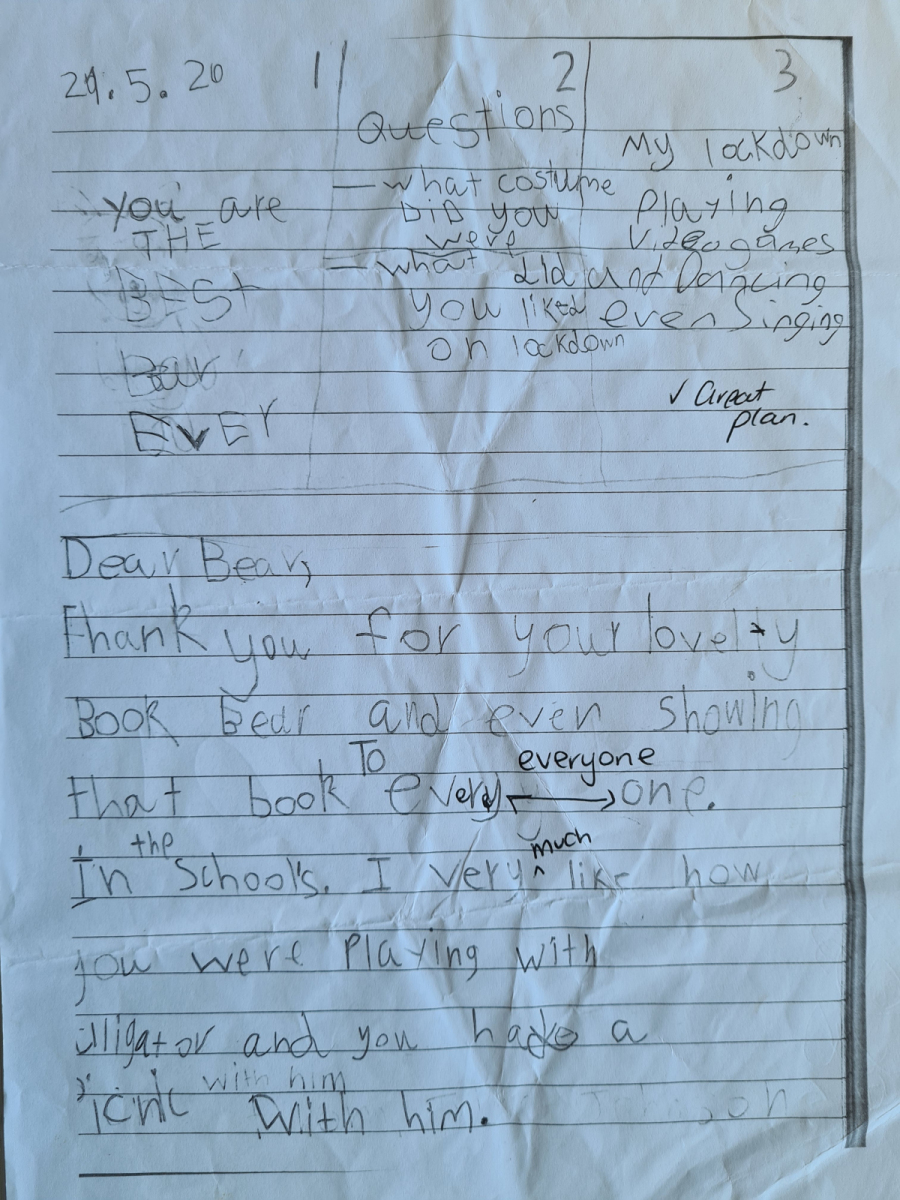 29.5.20 1
you are
THE
BEST
Bear
EVEr
2
Questions
— what costume
DID you
were
— what did
you liked
on lockdown
3
My lockdown
Playing
Videogames
and Dancing
even Singing
✓ Great
plan.
Dear Bear,
Thank you for your lovely
Book Bear and even showing
To everyone
that book every one.
the much
In School's. I very ^ like how
you were Playing with
alligator and you had a
with him
Picnic With him.